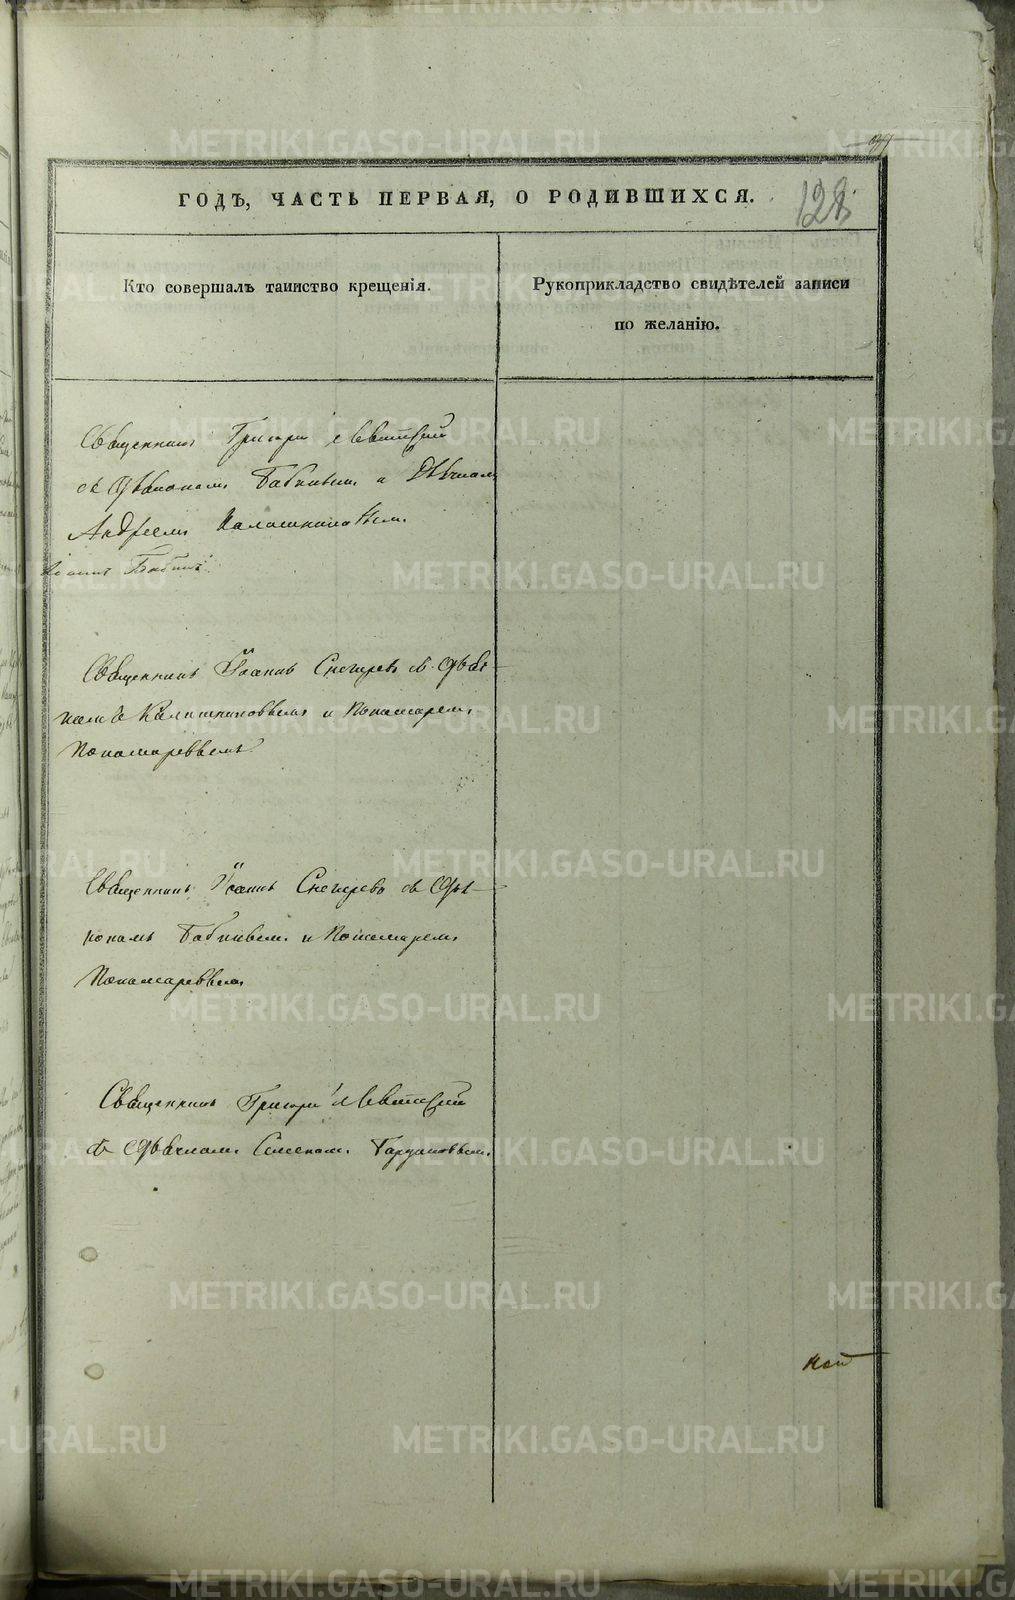 ГОДЪ, ЧАСТЬ ПЕРВАЯ, О РОДИВШИХСЯ.
128.
Кто совершалъ таинство крещенія.
Рукоприкладство свидѣтелей записи
по желанію.
Священникъ Григорій Левитскій
съ Діакономъ Бабинымъ и Дьячкомъ
Андреемъ Калашниковымъ
Бабинъ
Священникъ Іоаннъ Снегирев съ
Калашниковымъ и Пономаремъ
Пономаревымъ
Священникъ Іоаннъ Снегиревъ съ Діа-
кономъ Бабинымъ и Пономаремъ
Пономаревымъ
Священникъ Григорій Левитскій
съ Дьячкомъ Семеномъ
METRIKI.GASO-URAL.RU